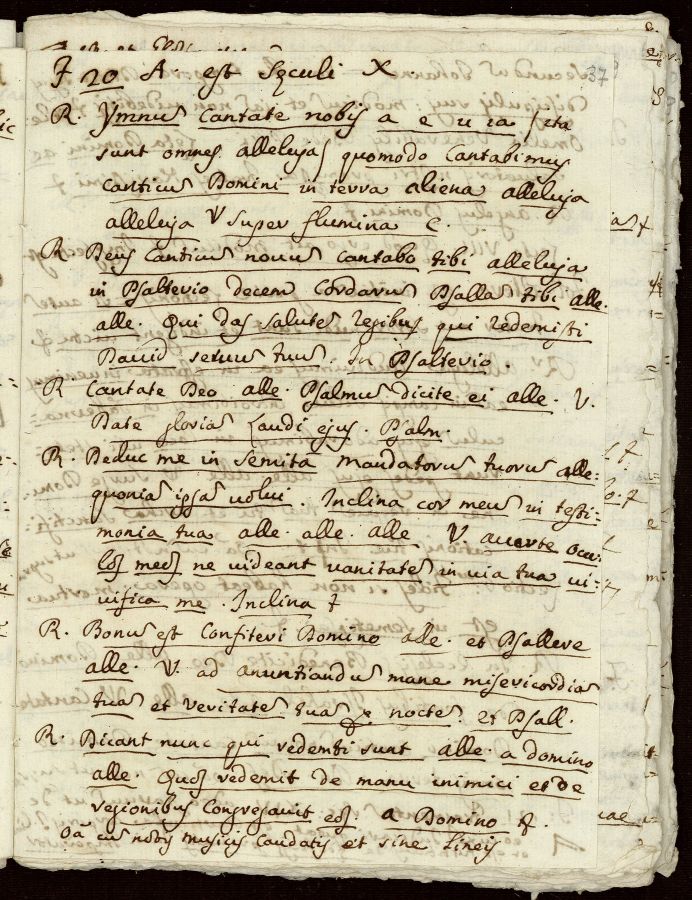 F 20 A. est Sęculi X 37
R. Ymnus cantate nobis a e u ia / ita
sunt omnes alleluja / quomodo Cantabimus
canticus Domini in terra aliena alleluja
alleluja V super flumina c.
R Deus Canticus nouus cantabo tibi alleluja
in Psalterio decem cordarus Psallas tibi alle.
alle. Qui das salutes regibus qui redemisti
Dauid seruus tuus. In Psalterio.
R Cantate Deo alle. Psalmus dicite ei alle. V.
Date glorias Laudi ejus. Psalm.
R. Deduc me in semita mandatorus tuorus alle.
quonias ipsas uolui. Inclina cor meus in testi:
monia tua alle. alle. alle V. auerte ocu:
los meos ne uideant uanitates in uia tua ui:
uifica me. Inclina
R. Bonus est Confiteri Domino alle. et Psallere
alle. V. ad anuntiandus mane misericordias
tuas et veritates tuas noctes. et Psall.
R. Dicant nunc qui redemti sunt alle. a domino
alle. Quos redemit de manu inimici et de
regionibus congregauit eos. a Domino
Oã cus notis musicis caudatis et sine lineis